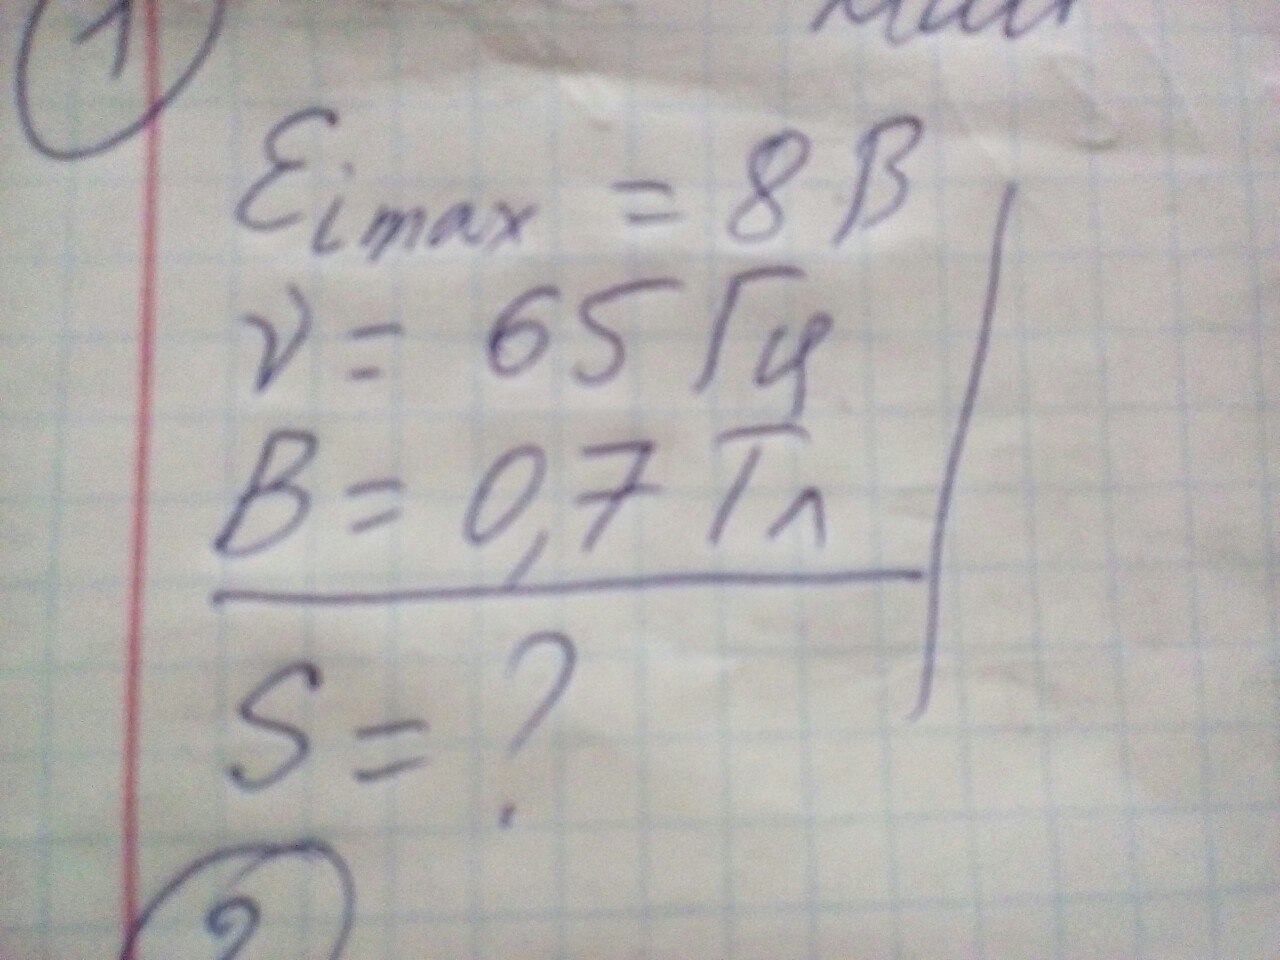 1
ℰimax = 8 В
ν = 65 Гц
B = 0,7 Тл
S = ?
2